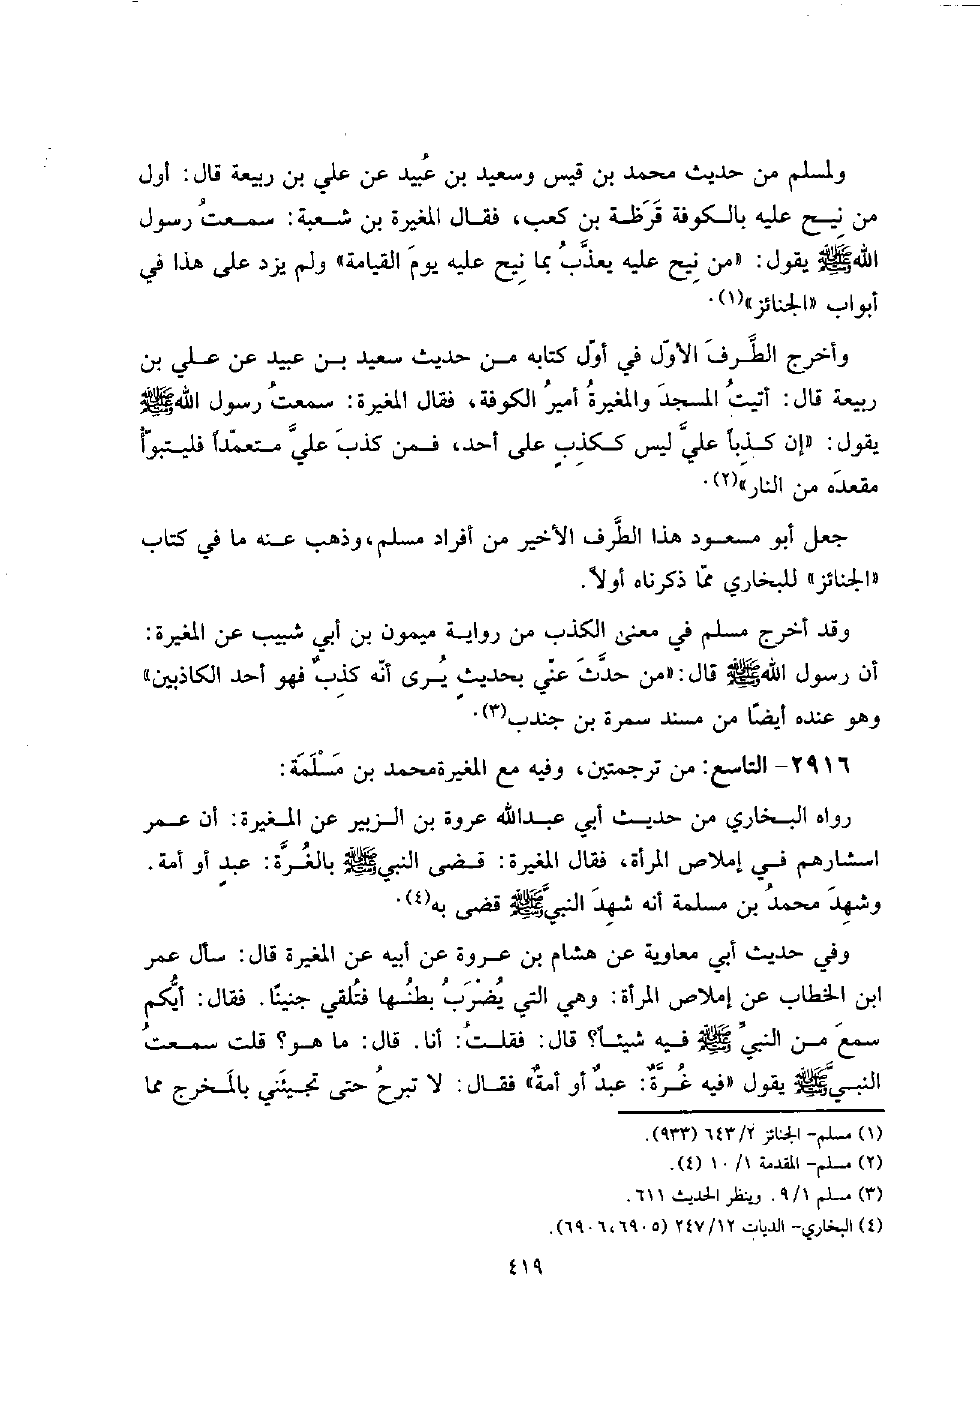 ولمسلم من حديث محمد بن قيس وسعيد بن عُبيد عن علي بن ربيعة قال: أول
من نِيح عليه بالكوفة قَرَظة بن كعب، فقال المغيرة بن شعبة: سمعتُ رسول
الله ﷺ يقول: «من نِيح عليه يعذَّبُ بما نِيح عليه يومَ القيامة» ولم يزد على هذا في
أبواب «الجنائز»(١).
وأخرج الطَّرفَ الأوّل في أوّل كتابه من حديث سعيد بن عبيد عن علي بن
ربيعة قال: أتيتُ المسجدَ والمغيرةُ أميرُ الكوفة، فقال المغيرة: سمعتُ رسول الله ﷺ
يقول: «إن كَذِباً عليَّ ليس ككذبٍ على أحد، فمن كذبَ عليَّ متعمّداً فليتبوّأ
مقعدَه من النار»(٢).
جعل أبو مسعود هذا الطَّرف الأخير من أفراد مسلم، وذهب عنه ما في كتاب
«الجنائز» للبخاري ممّا ذكرناه أولاً.
وقد أخرج مسلم في معنى الكذب من رواية ميمون بن أبي شبيب عن المغيرة:
أن رسول الله ﷺ قال: «من حدَّثَ عنّي بحديثٍ يُرى أنّه كذِبٌ فهو أحد الكاذبين»
وهو عنده أيضًا من مسند سمرة بن جندب(٣).
٢٩١٦- التاسع: من ترجمتين، وفيه مع المغيرة محمد بن مَسْلَمَة:
رواه البخاري من حديث أبي عبدالله عروة بن الزبير عن المغيرة: أن عمر
استشارهم في إملاص المرأة، فقال المغيرة: قضى النبي ﷺ بالغُرَّة: عبدٍ أو أمة.
وشهِدَ محمدُ بن مسلمة أنه شهِدَ النبيَّ ﷺ قضى به(٤).
وفي حديث أبي معاوية عن هشام بن عروة عن أبيه عن المغيرة قال: سأل عمر
ابن الخطاب عن إملاص المرأة: وهي التي يُضْرَبُ بطنُها فتُلقي جنينًا. فقال: أيُّكم
سمعَ من النبيِّ ﷺ فيه شيئاً؟ قال: فقلتُ: أنا. قال: ما هو؟ قلت سمعتُ
النبيَّ ﷺ يقول «فيه غُرَّةٌ: عبدٌ أو أمةٌ» فقال: لا تبرحُ حتى تجيئَني بالمَخرج مما
(١) مسلم- الجنائز ٦٤٣/٢ (٩٣٣).
(٢) مسلم- المقدمة ١٠/١ (٤).
(٣) مسلم ٩/١. وينظر الحديث ٦١١.
(٤) البخاري- الديات ٢٤٧/١٢ (٦٩٠٥،٦٩٠٦).
٤١٩